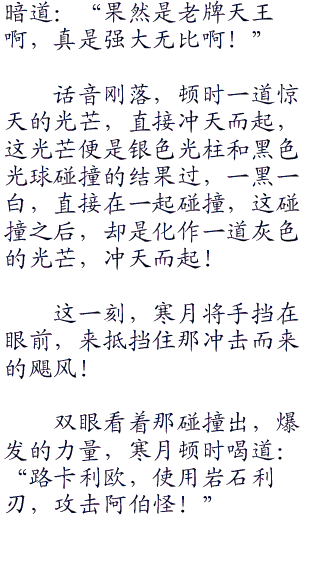 暗道：“果然是老牌天王
啊，真是强大无比啊！”
话音刚落，顿时一道惊
天的光芒，直接冲天而起，
这光芒便是银色光柱和黑色
光球碰撞的结果过，一黑一
白，直接在一起碰撞，这碰
撞之后，却是化作一道灰色
的光芒，冲天而起！
这一刻，寒月将手挡在
眼前，来抵挡住那冲击而来
的飓风！
双眼看着那碰撞出，爆
发的力量，寒月顿时喝道：
“路卡利欧，使用岩石利
刃，攻击阿伯怪！”